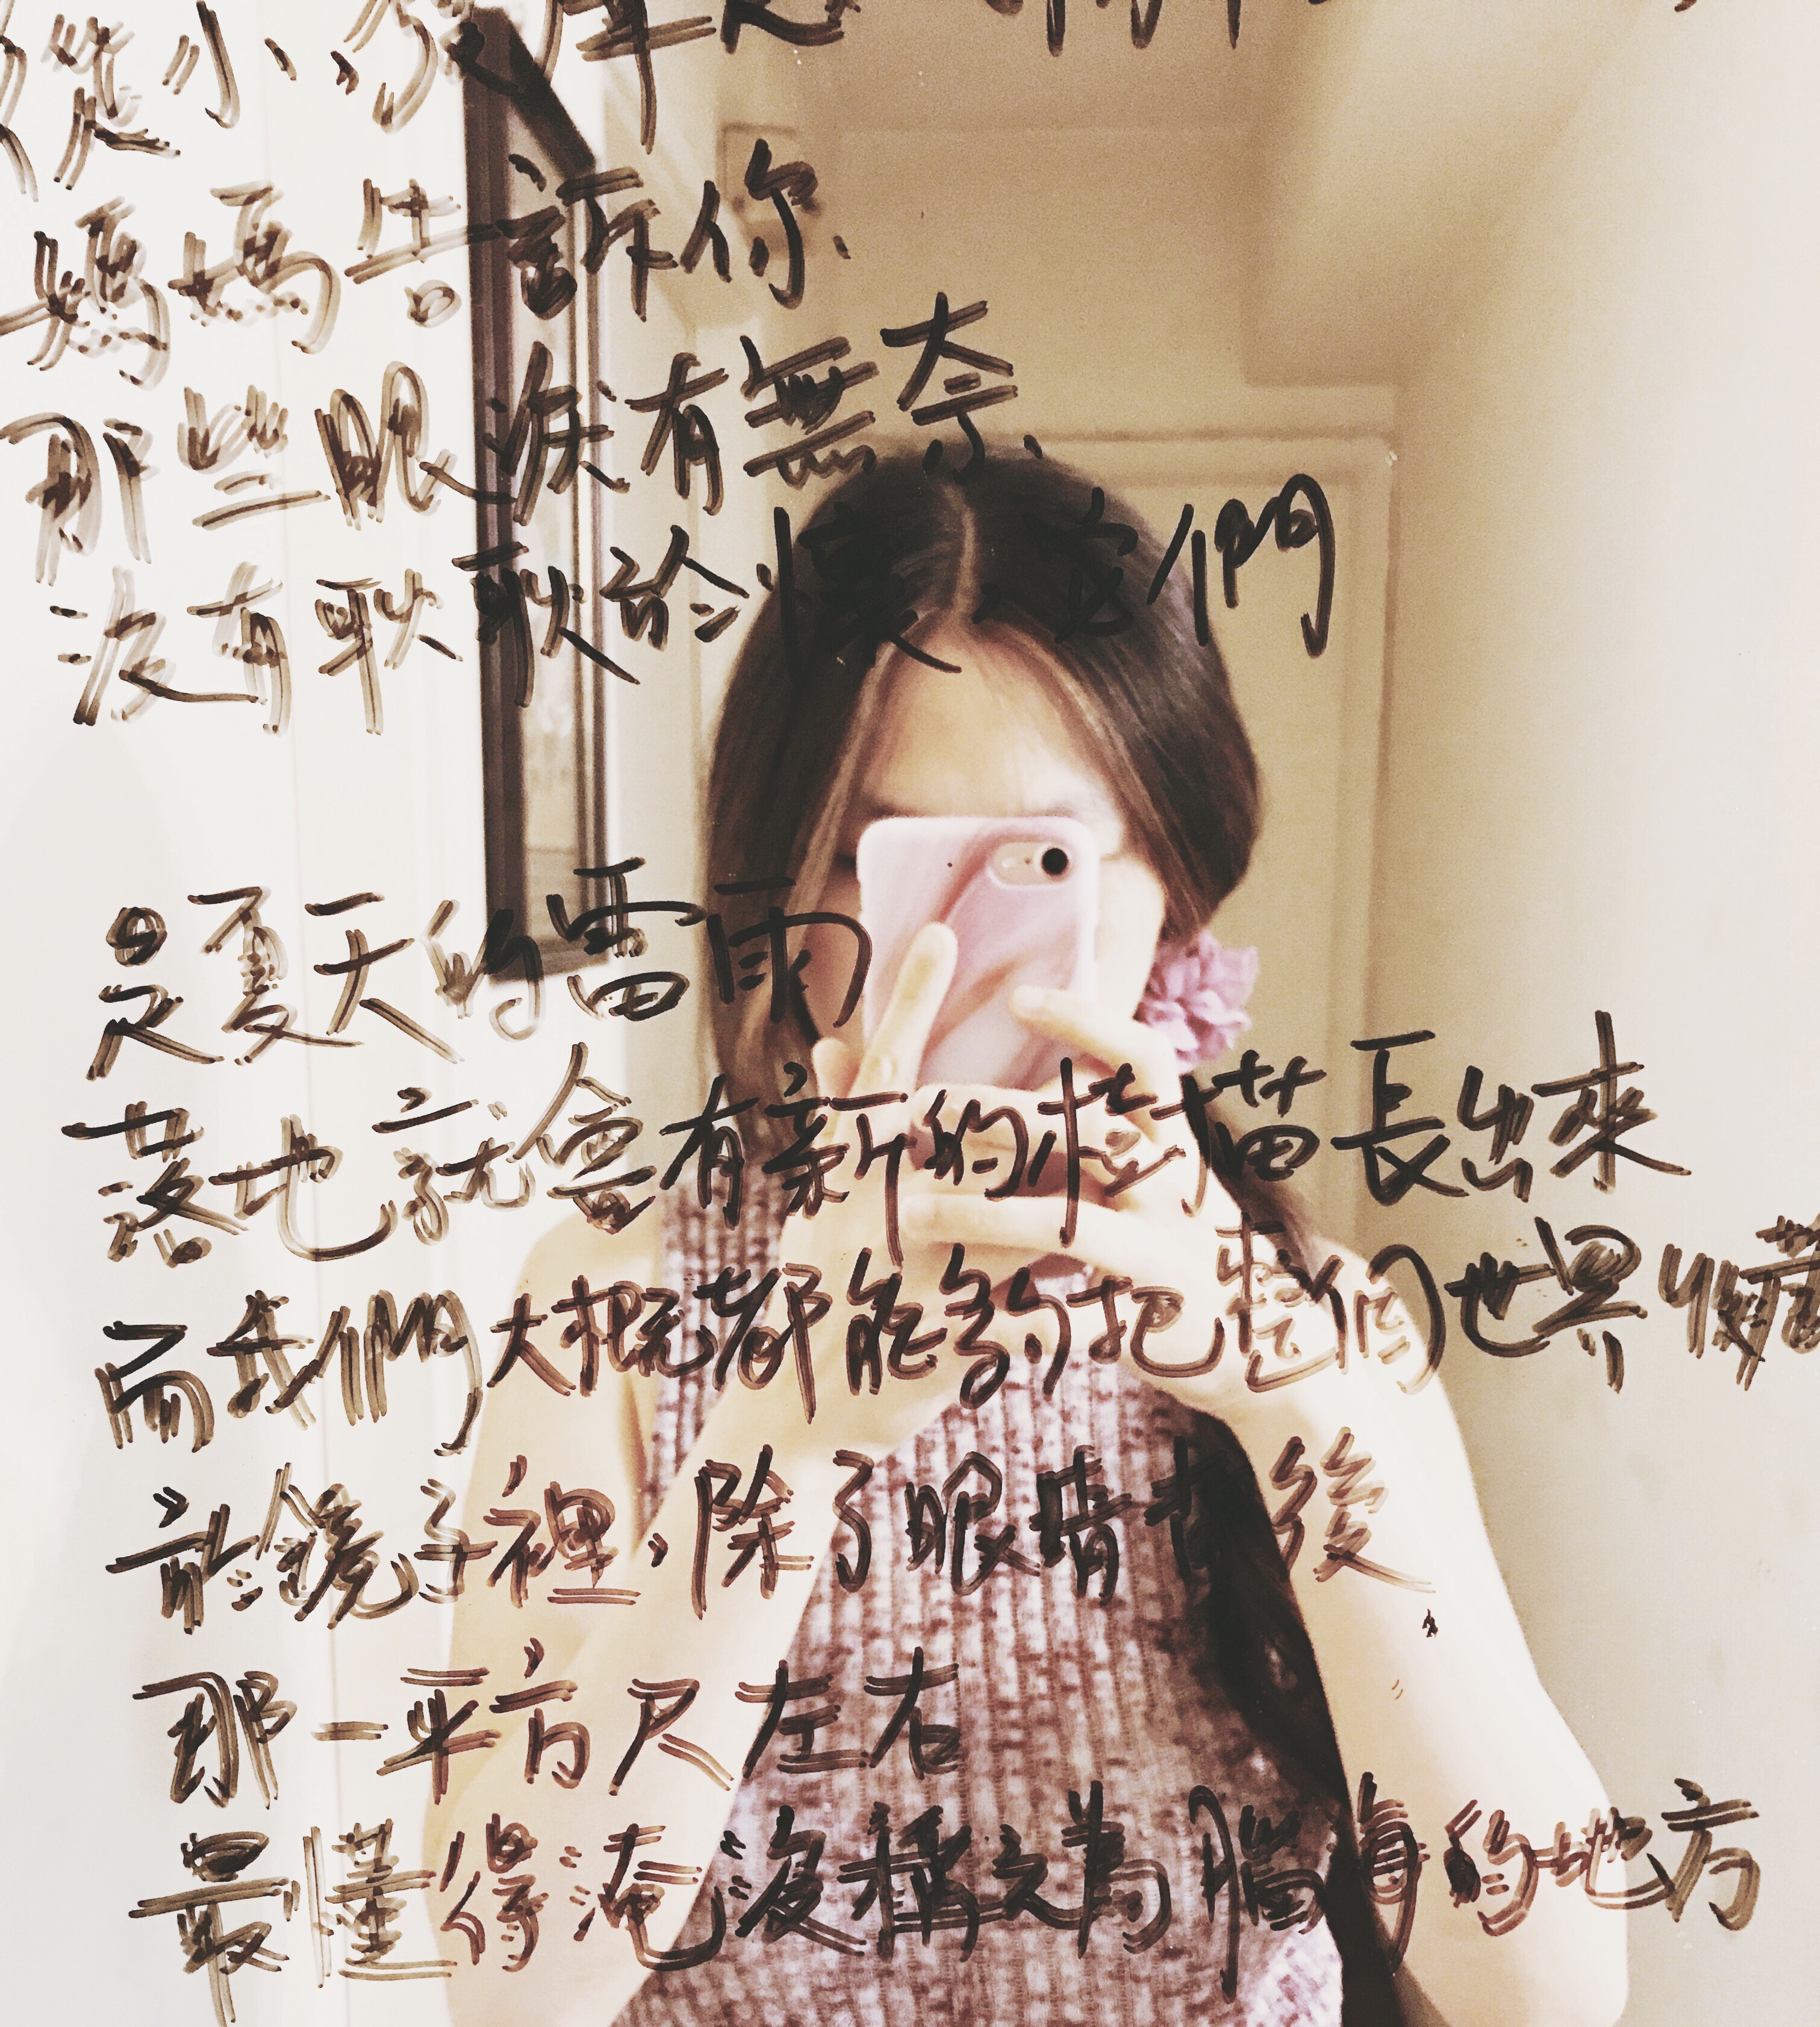 從小、
媽媽告訴你、
那些眼淚有無奈、
沒有耿耿於懷、它們
是夏天的雷雨
落地就會有新的樹苗長出來
而我們大概都能夠把整個世界收藏
於鏡子裡、除了眼睛背後
那一平方尺左右
最懂得淹沒稱之為腦海的地方